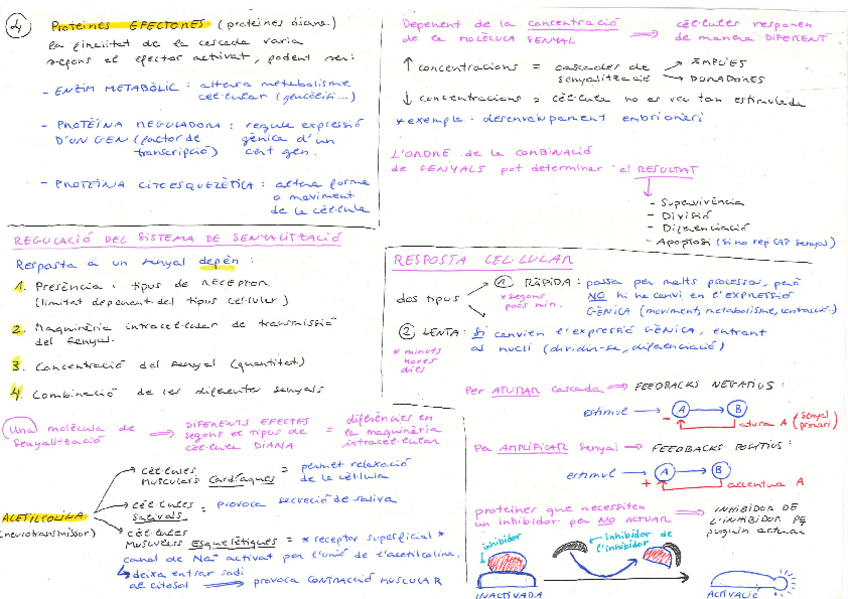 4) Proteïnes EFECTORES (proteïnes diana)
La finalitat de la cascada varia
segons el efector activat, podent ser:
- ENZIM METABÒLIC: altera metabolisme
cel·lular (glucòlisi...)
- PROTEÏNA REGULADORA: regula expressió
D'UN GEN (factor de gènica d'un
transcripció) cert gen.
- PROTEÏNA CITOESQUELÈTICA: altera forma
o moviment
de la cèl·lula
REGULACIÓ DEL SISTEMA DE SENYALITZACIÓ
Resposta a un senyal depèn:
1. Presència i tipus de RECEPTOR
(limitat depenent del tipus cel·lular)
2. Maquinària intracel·lular de transmissió
del senyal.
3. Concentració del senyal (quantitat)
4. Combinació de les diferents senyals
Una molècula de senyalització ⇒ DIFERENTS EFECTES segons el tipus de cèl·lula DIANA = diferències en la maquinària intracel·lular
ACETILCOLINA
(neurotransmissor)
cèl·lules musculars Cardíaques = permet relaxació de la cèl·lula
cèl·lules Salivals = provoca secreció de saliva
cèl·lules musculars Esquelètiques = * receptor superficial *
canal de Na+ activat per l'unió de l'acetilcolina.
↳ deixa entrar sodi
al citosol → provoca CONTRACCIÓ MUSCULAR
Depenent de la concentració de la MOLÈCULA SENYAL ⇒ cèl·lules responen de manera DIFERENT
↑ concentracions = cascades de senyalització → AMPLIES
→ DURADORES
↓ concentracions = cèl·lula no es veu tan estimulada
* exemple: desenvolupament embrionari
L'ORDRE de la COMBINACIÓ
de SENYALS pot determinar el RESULTAT
- Supervivència
- Divisió
- Diferenciació
- Apoptosi (si no rep CAP senyal)
RESPOSTA CEL·LULAR
dos tipus
1 RÀPIDA: passa per molts processos, però
NO hi ha canvi en l'EXPRESSIÓ
GÈNICA (moviment, metabolisme, contracció)
* segons
pocs min.
2 LENTA: SI canvien l'expressió GÈNICA, entrant
al nucli (dividir-se, diferenciació)
* minuts
hores
dies
Per ATURAR cascada ⇒ FEEDBACKS NEGATIUS:
estimul → A → B
- atura A (senyal primari)
Per AMPLIFICAR senyal → FEEDBACKS POSITIUS:
estimul → A → B
+ accentua A
proteïnes que necessiten
un inhibidor per NO ACTUAR ⇒ INHIBIDOR DE L'INHIBIDOR PQ puguin actuar
inhibidor
inhibidor de
l'inhibidor
INACTIVADA
ACTIVACIÓ